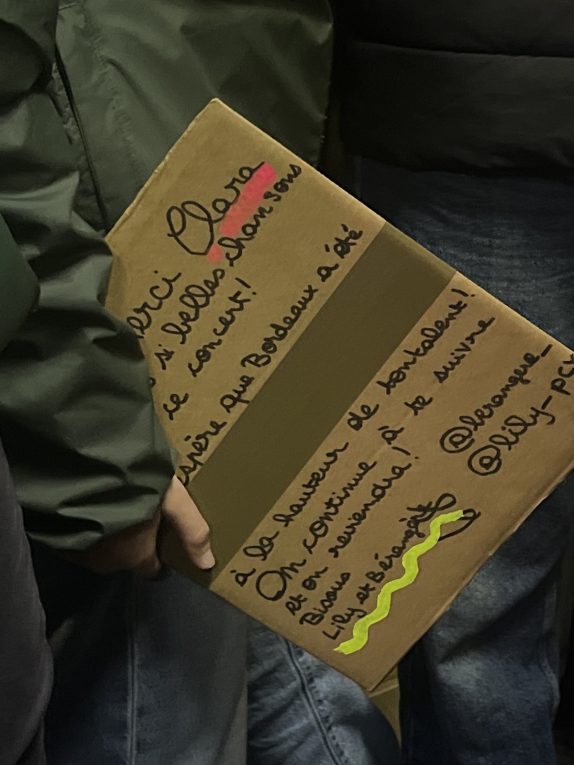 Clara
erci
si belles chansons
ce concert!
spère que Bordeaux a été
à la hauteur de ton talent!
On continue à te suivre
et on reviendra!
Bisous
Lily et Bérangère
@berangere_
@lily-pcx